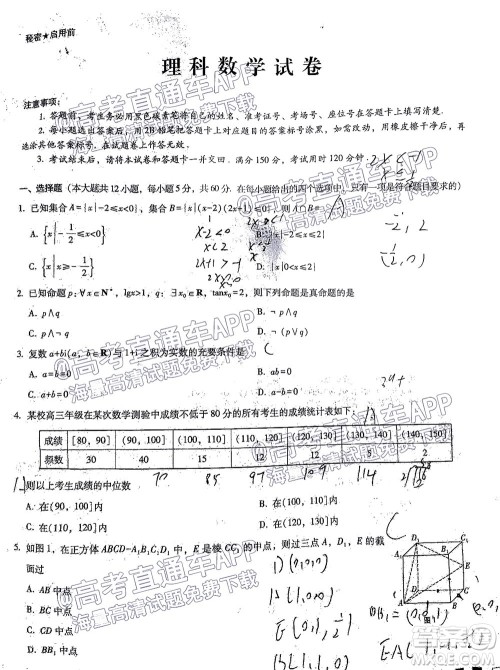 秘密★启用前
理科数学试卷
注意事项：
1. 答题前，考生务必用黑色碳素笔将自己的姓名、准考证号、考场号、座位号在答题卡上填写清楚.
2. 每小题选出答案后，用2B铅笔把答题卡上对应题目的答案标号涂黑. 如需改动，用橡皮擦干净后，再
选涂其他答案标号. 在试题卷上作答无效.
3. 考试结束后，请将本试卷和答题卡一并交回. 满分150分，考试用时120分钟.
一、选择题（本大题共12小题，每小题5分，共60分. 在每小题给出的四个选项中，只有一项是符合题目要求的）
1. 已知集合A={x|-2≤x<0}，集合B={x|(x-2)(2x+1)≤0}，则A∩B= A
A. {x|-1/2≤x<0}
B. {x|-2≤x≤2}
C. {x|x≥-1/2}
D. {x|0<x≤2}
x-2<0
x<2
2x+1>-1
2. 已知命题p:∀x∈N*，lgx>1，q:∃x₀∈R，tanx₀=2，则下列命题是真命题的是
A. p∧q
B. ¬p∧q
C. p∧¬q
D. ¬(p∨q)
3. 复数a+bi(a，b∈R)与1+i之积为实数的充要条件是 C
A. a=b=0
B. ab=0
C. a+b=0
D. a-b=0
4. 某校高三年级在某次数学测验中成绩不低于80分的所有考生的成绩统计表如下：
成绩 [80，90] (90，100] (100，110] (110，120] (120，130] (130，140] (140，150]
频数 30 40 15 12 12 5 2
85 97 109 114
则以上考生成绩的中位数
A. 在(90，100]内
B. 在(100，110]内
C. 在(110，120]内
D. 在(120，130]内
5. 如图1，在正方体ABCD-A₁B₁C₁D₁中，E是棱CC₁的中点，则过三点A、D₁、E的截
面过
A. AB中点
B. BC中点
C. CD中点
D. BB₁中点
高考直通车APP
海量高清试题免费下载